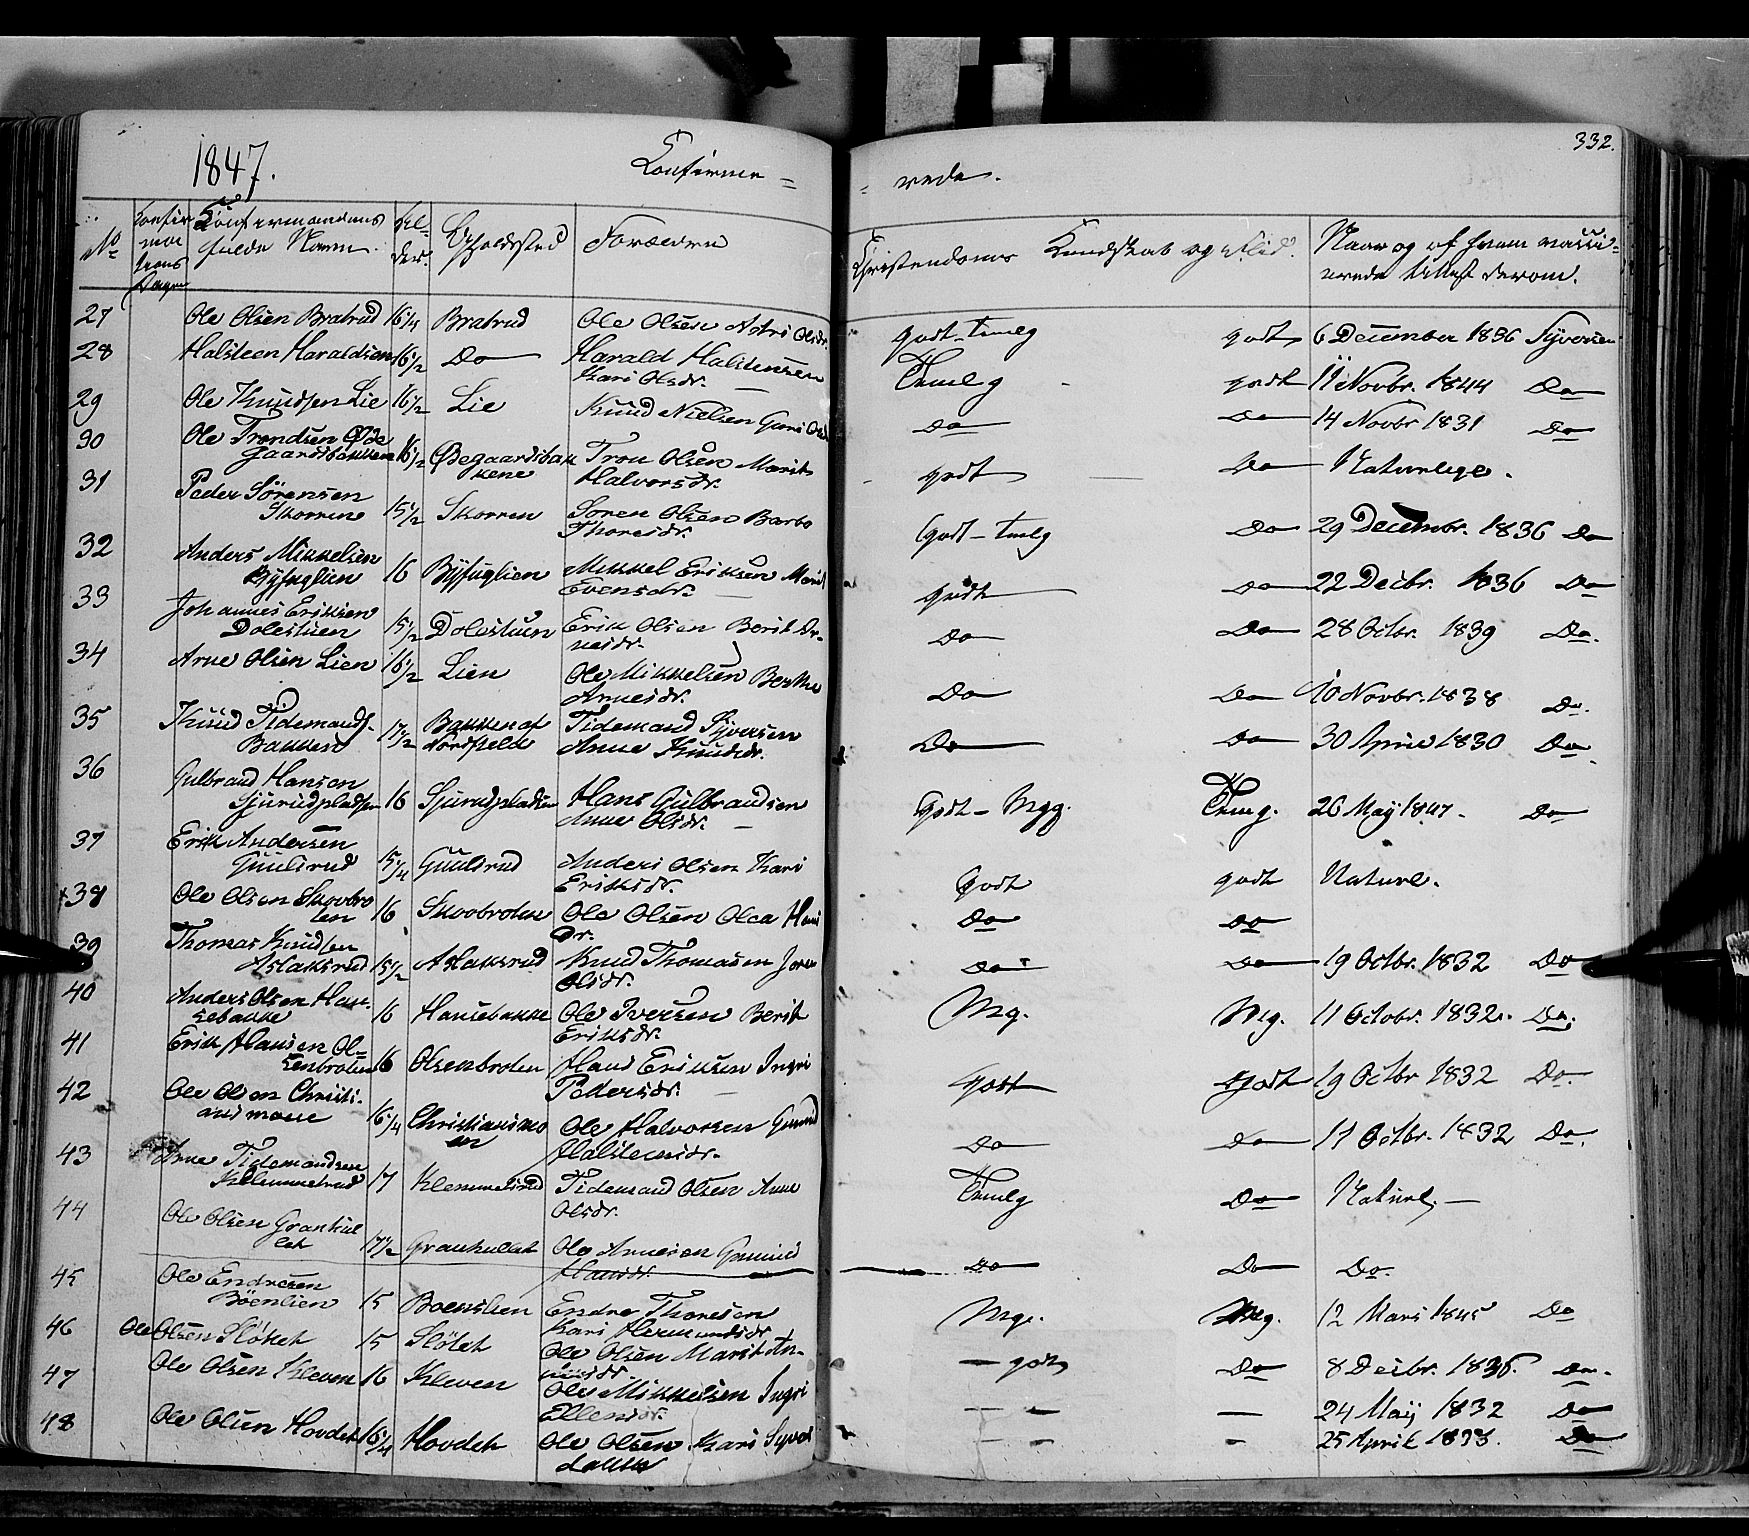 332.
1847. Confirme= =rede.
No Confirmations Dagen Confirmandens fulde Navn. Alder. Opholdssted Forældre Christendoms Kundskab og Flid. Naar og af hvem vaccinerede Attest derom.
27 Ole Olsen Bratrud 16 1/4 Bratrud Ole Olsen Astri Olsdr. godt-temlg godt 6 December 1836 Syversen
28 Halsteen Haraldsen 16 1/2 Do Harald Halstensen
Kari Olsdr. Temlg godt 11 Novbr. 1844 Do
29 Ole Knudsen Lie 16 1/2 Lie Knud Nielsen Guri Do Do 14 Novbr 1831 Do
30 Ole Trondsen Øde
gaardsbakken 16 1/2 Øegaardsbak
kene Tron Olsen Marit
Halvorsdr. godt Do Naturlige.
31 Peder Sörensen
Skorren 15 1/2 Skorren Sören Olsen Barbo
Thoresdr. Godt-temlg Do 29 Decembr. 1836 Do
32 Anders Mikkelsen
Byfuglien 16 Byfuglien Mikkel Eriksen Marit
Evensdr. godt Do 22 Decbr. 1836 Do
33 Johannes Eriksen
Dolestuen 15 1/2 Dolestuen Erik Olsen Berit Ar-
nesdr. Do Do 28 Octbr. 1839 Do.
34 Arne Olsen Lien 16 1/2 Lien Ole Mikkelsen Berthe
Arnesdr. Do Do 10 Novbr. 1838 Do.
35 Knud Tidemands.
Bakken 17 1/2 Bakken af
Nordfjeld Tidemand Syversen
Anne Knudsdr. Do Do 30 April 1830 Do.
36 Gulbrand Hansen
Sjurudpladsen 16 Sjurudpladsen Hans Gulbrandsen
Anne Olsdr. Godt-Mgg. Temg. 26 Maij 1847. Do
37 Erik Andersen
Guulsrud 15 1/4 Guulsrud Anders Olsen Kari
Eriksdr. Godt godt Naturl.
38 Ole Olsen Skovbro
ten 16 Skovbroten Ole Olsen Olea Hans
Dr. Do Do
39 Thomas Knudsen
Aslaksrud 15 1/2 Aslaksrud Knud Thomasen
Olsdr. Do Do 19 Octbr. 1832 Do
40 Anders Olsen Hau-
sebakke 16 Hausebakke Ole Iversen Berit
Eriksdr. Mg. Mg. 11 Octobr. 1832. Do.
41 Erik Hansen Ol=
senbroten 16 Olsenbroten Hans Eriksen Ingri
Pedersdr. Godt Godt 19 Octbr 1832 Do.
42 Ole Olsen Christi-
ansmoen 16 1/4 Christiansmo
en Ole Halvorsen Gunild
Halstensdr. Do Do 17 Octbr. 1832 Do.
43 Arne Tidemandsen
Klemmetsrud 17 Klemmetsrud Tidemand Olsen Anne
Olsdr. Temlg Do Naturl.
44 Ole Olsen Grankul
let 17 1/2 Grankullet Ole Arnesen Gunild
Hansdr. Do Do Do.
45 Ole Endresen
Böenlien 15 Boenslien Endre Thoresen
Kari Hermundsdr Mge. Mg. 12 Mars 1845 Do
46 Ole Olsen Slötet 15 Slötet Ole Olsen Marit An-
– godt Do 8 Decbr. 1836. Do.
47 Ole Olsen Kleven 16 Kleven Ole Mikkelsen Ingri
Ellensdr. – – – 24 Maij 1832 Do
48 Ole Olsen Hovdet 16 1/4 Hovdet Ole Olsen Kari Syver
datter – – – 25 April 1833. Do